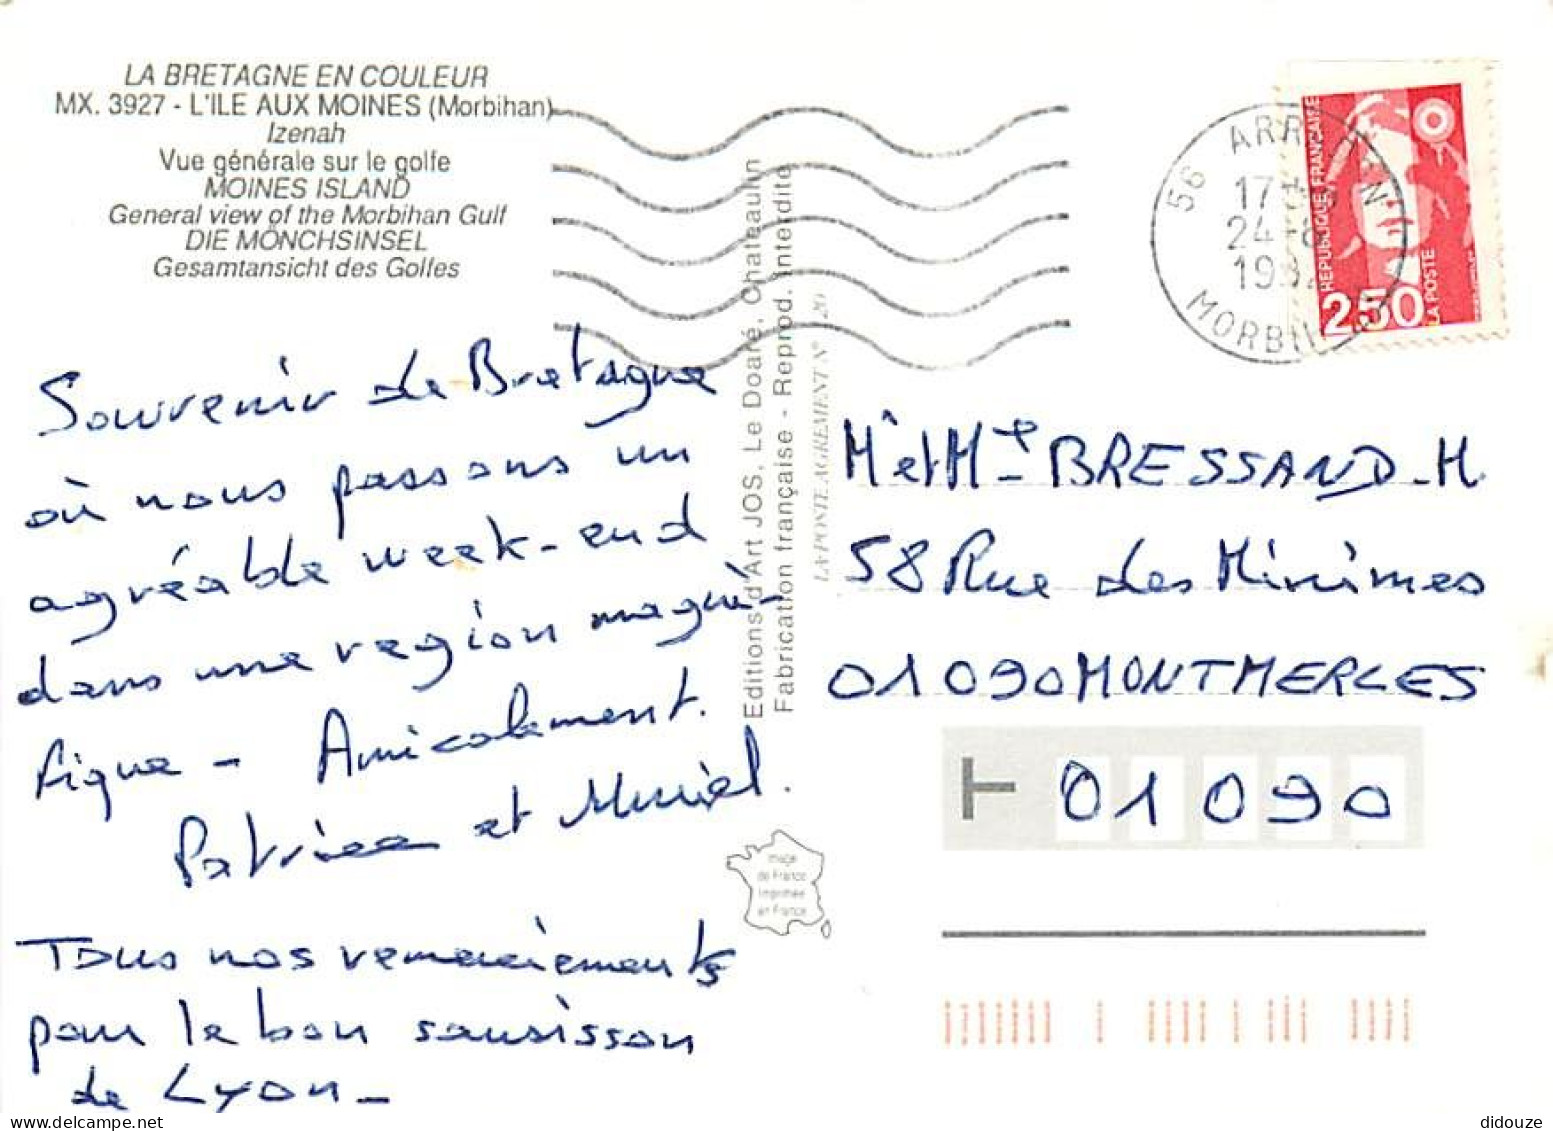 LA BRETAGNE EN COULEUR
MX. 3927 - L'ILE AUX MOINES (Morbihan)
Izenah
Vue générale sur le golfe
MOINES ISLAND
General view of the Morbihan Gulf
DIE MÖNCHSINSEL
Gesamtansicht des Golfes
Souvenir de Bretagne
où nous passons un
agréable week-end
dans une region magni-
fique - Amicalement.
Patrice et Muriel.
Tous nos remerciements
pour le bon saucisson
de Lyon -
Editions d'Art JOS, Le Doaré, Chateaulin
Fabrication française - Reprod. interdite
LA POSTE AGREMENT N° 20
Image
de France
Imprimée
en France
56 ARR
17
24
MORBI
REPUBLIQUE FRANÇAISE
2,50
LA POSTE
Mr et Mme BRESSAND. M
58 Rue des Minimes
01090 MONTMERLES
01090
didouze